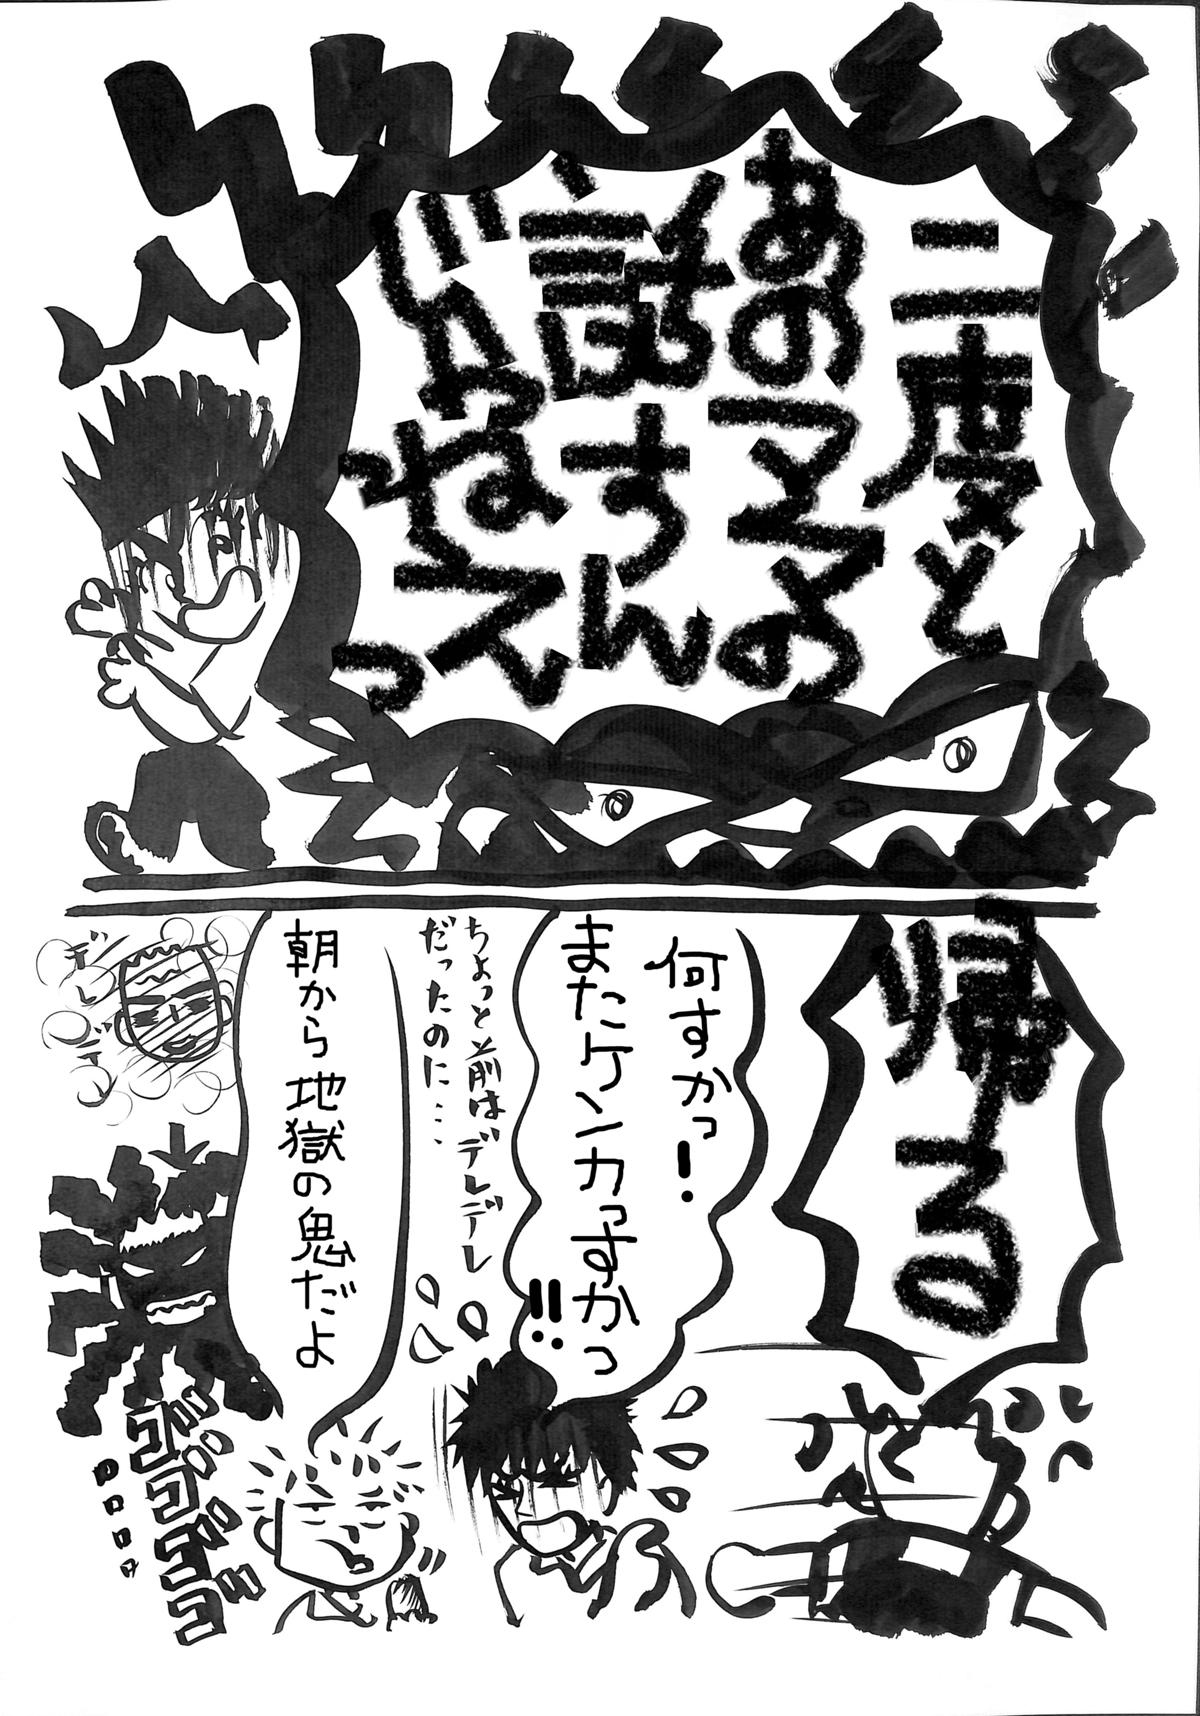 二度と
あのアマの
話すん
じゃねえっ
帰る
何すかっ!
またケンカっすかっ!!
ちょっと前はデレデレ
だったのに…
朝から地獄の鬼だよ
デレデレ